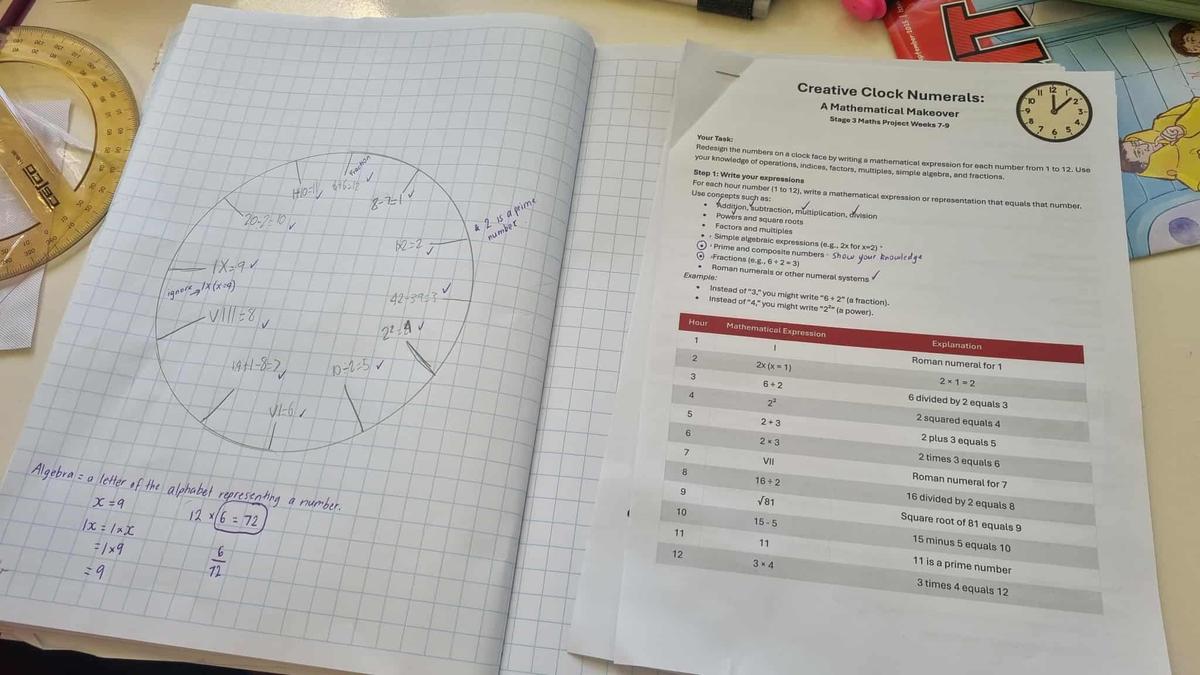 fraction
1+10=11 ✓
6+6=12 ✓
8-7=1 ✓
20-2=10 ✓
* 2 is a prime
number
1X=9 ✓
ignore → 1x (x=9)
42-39=3 ✓
VIII=8 ✓
2²=4 ✓
10-2=5 ✓
VI=6 ✓
Algebra = a letter of the alphabet representing a number.
x=9
1x = 1 × x
= 1 × 9
= 9
12 × 6 = 72
6
72
celco
Creative Clock Numerals:
A Mathematical Makeover
Stage 3 Maths Project Weeks 7-9
Your Task:
Redesign the numbers on a clock face by writing a mathematical expression for each number from 1 to 12. Use
your knowledge of operations, indices, factors, multiples, simple algebra, and fractions.
Step 1: Write your expressions
For each hour number (1 to 12), write a mathematical expression or representation that equals that number.
Use concepts such as:
• Addition, subtraction, multiplication, division
• Powers and square roots
• Factors and multiples
• Simple algebraic expressions (e.g., 2x for x=2)
• Prime and composite numbers - show your knowledge
• Fractions (e.g., 6 ÷ 2 = 3)
• Roman numerals or other numeral systems ✓
Example:
• Instead of "3," you might write "6 ÷ 2" (a fraction).
• Instead of "4," you might write "2²" (a power).
Hour Mathematical Expression Explanation
1 I Roman numeral for 1
2 2x (x = 1) 2 × 1 = 2
3 6 ÷ 2 6 divided by 2 equals 3
4 2² 2 squared equals 4
5 2 + 3 2 plus 3 equals 5
6 2 × 3 2 times 3 equals 6
7 VII Roman numeral for 7
8 16 ÷ 2 16 divided by 2 equals 8
9 √81 Square root of 81 equals 9
10 15 - 5 15 minus 5 equals 10
11 11 11 is a prime number
12 3 × 4 3 times 4 equals 12